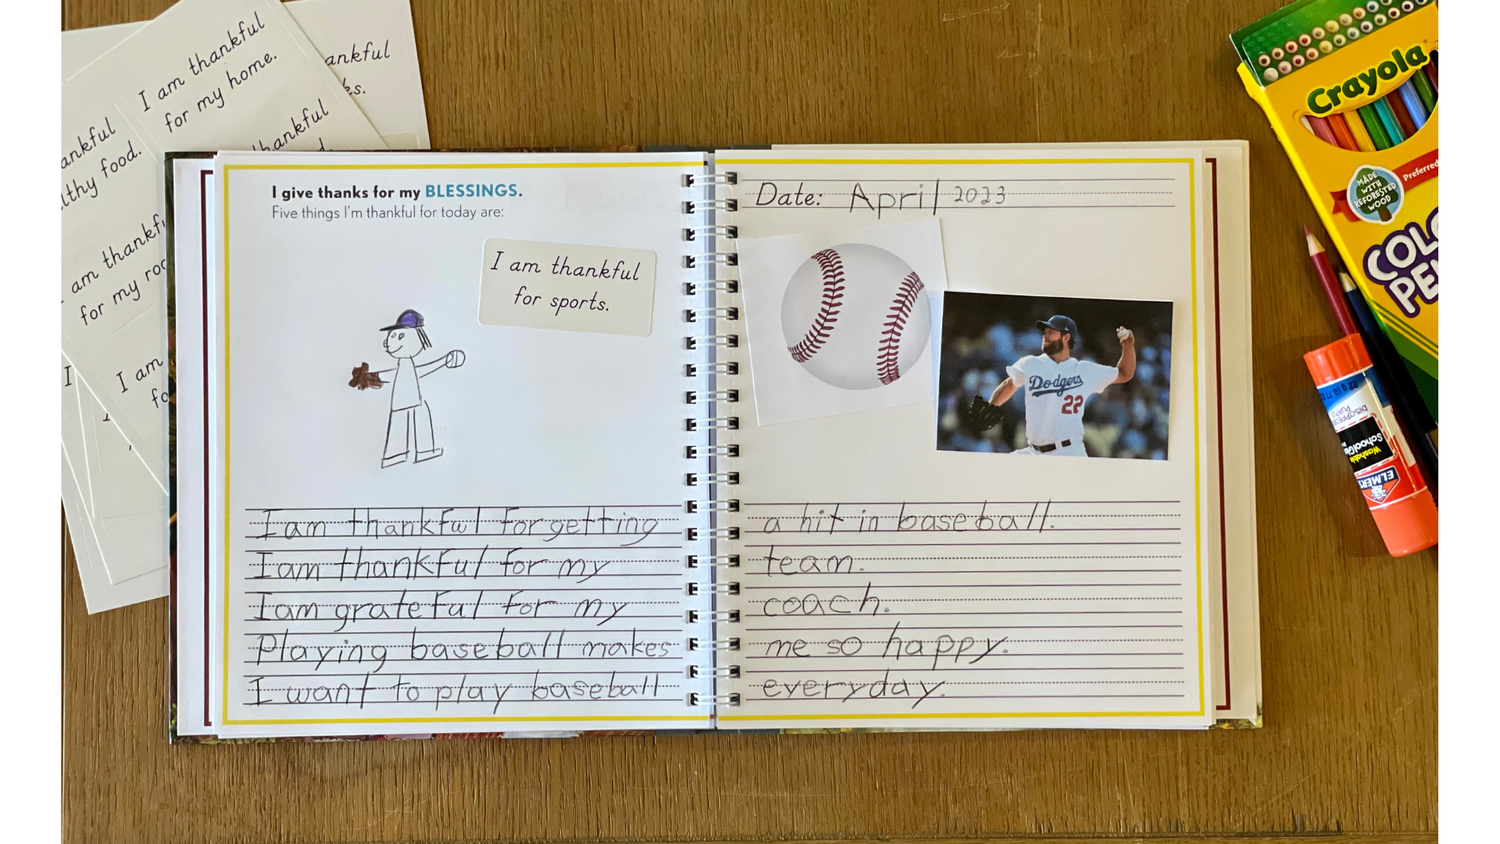 I am thankful
for my home.
ankful
es.
ankful
lthy food.
thankful
d.
am thankfu
for my roo
I am
fo
I
I give thanks for my BLESSINGS.
Five things I'm thankful for today are:
I am thankful
for sports.
Date: April 2023
Dodgers
22
I am thankful for getting a hit in baseball.
I am thankful for my team.
I am grateful for my coach.
Playing baseball makes me so happy.
I want to play baseball everyday.
Crayola
MADE
WITH
REFORESTED
WOOD
Preferred
COLO
PE
DISAPPEARS
PURPLE
Washable
School Glue
ELMER'S